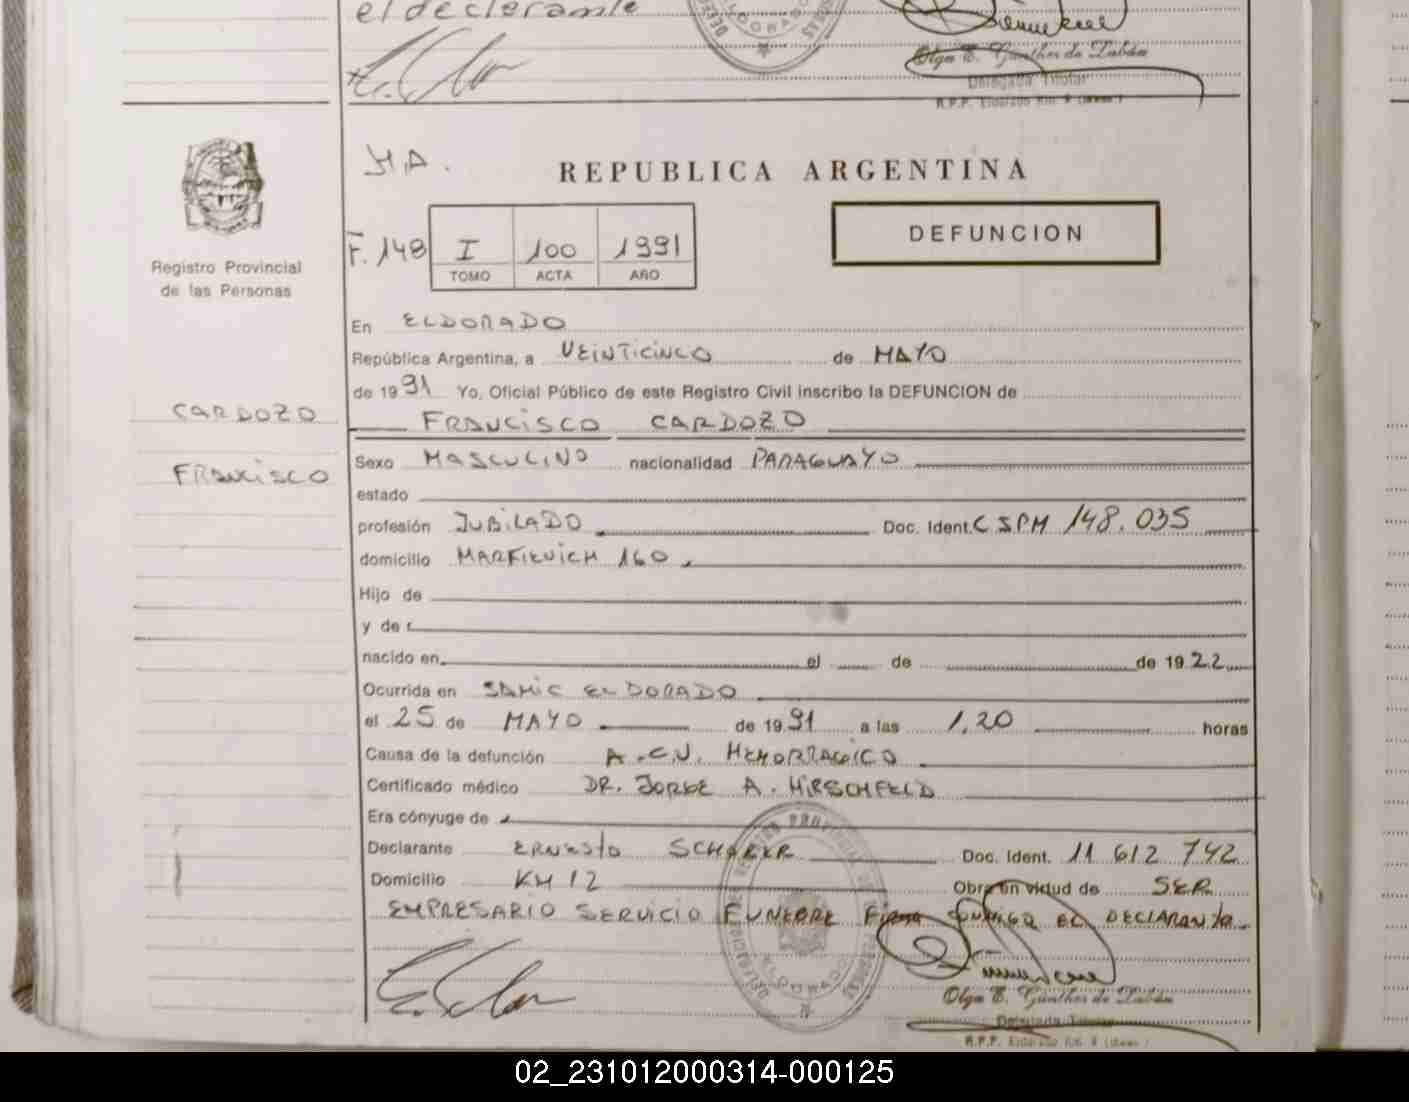 el declarante
Olga E. Günther de Lubán
Delegada Titular
R.P.P. Eldorado Km. 9 (Mnes.)
HA.
REPUBLICA ARGENTINA
F. 148 I 100 1991
TOMO ACTA AÑO
DEFUNCION
Registro Provincial
de las Personas
En ELDORADO
República Argentina, a VEINTICINCO de MAYO
de 1991 Yo, Oficial Público de este Registro Civil inscribo la DEFUNCION de
CARDOZO
FRANCISCO CARDOZO
Sexo MASCULINO nacionalidad PARAGUAYO
FRANCISCO
estado
profesión JUBILADO Doc. Ident. CSPM 148.035
domicilio MARFIEVICH 160
Hijo de
y de
nacido en el de de 1922
Ocurrida en SAMIC ELDORADO
el 25 de MAYO de 1991 a las 1,20 horas
Causa de la defunción A.C.V. HEMORRAGICO
Certificado médico DR. JORGE A. HIRSCHFELD
Era cónyuge de
Declarante ERNESTO SCHARER Doc. Ident. 11 612 742
Domicilio KM 12 Obra en virtud de SER
EMPRESARIO SERVICIO FUNEBRE FIRMA CONMIGO EL DECLARANTE
ELDORADO
Olga E. Günther de Lubán
Delegada Titular
R.P.P. Eldorado Km. 9 (Mnes.)
02_231012000314-000125